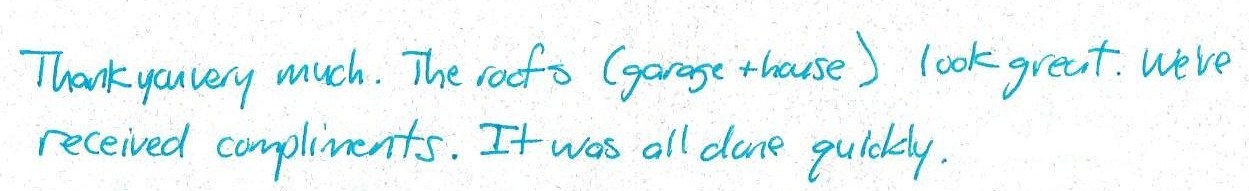 Thank you very much. The roofs (garage + house) look great. We've
received compliments. It was all done quickly.